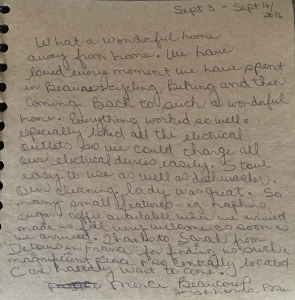 Sept 3 - Sept 16/
2016
What a wonderful home
away from home. We have
loved every moment we have spent
in Beaune cycling, biking and then
coming back to such a wonderful
home. Everything worked so well -
especially liked all the electrical
outlets so we could charge all
our electrical devices easily. Stove
easy to use as well as dishwasher.
Our cleaning lady was great. So
many small features - eg. napkins,
sugar, coffee available when we arrived
made us feel very welcome as soon as
we arrived. Thanks to Sarah from
Detours in France for finding us such a
magnificent place &amp; so centrally located
C an hardly wait to come.
Merci Beaucoup